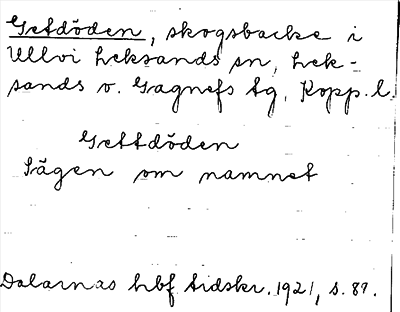 Getdöden, skogsbacke i
Ullvi Leksands sn, Lek-
sands o. Gagnefs tg, Kopp. l.
Gettdöden
Sägen om namnet
Dalarnas hbf tidskr. 1921, s. 87.